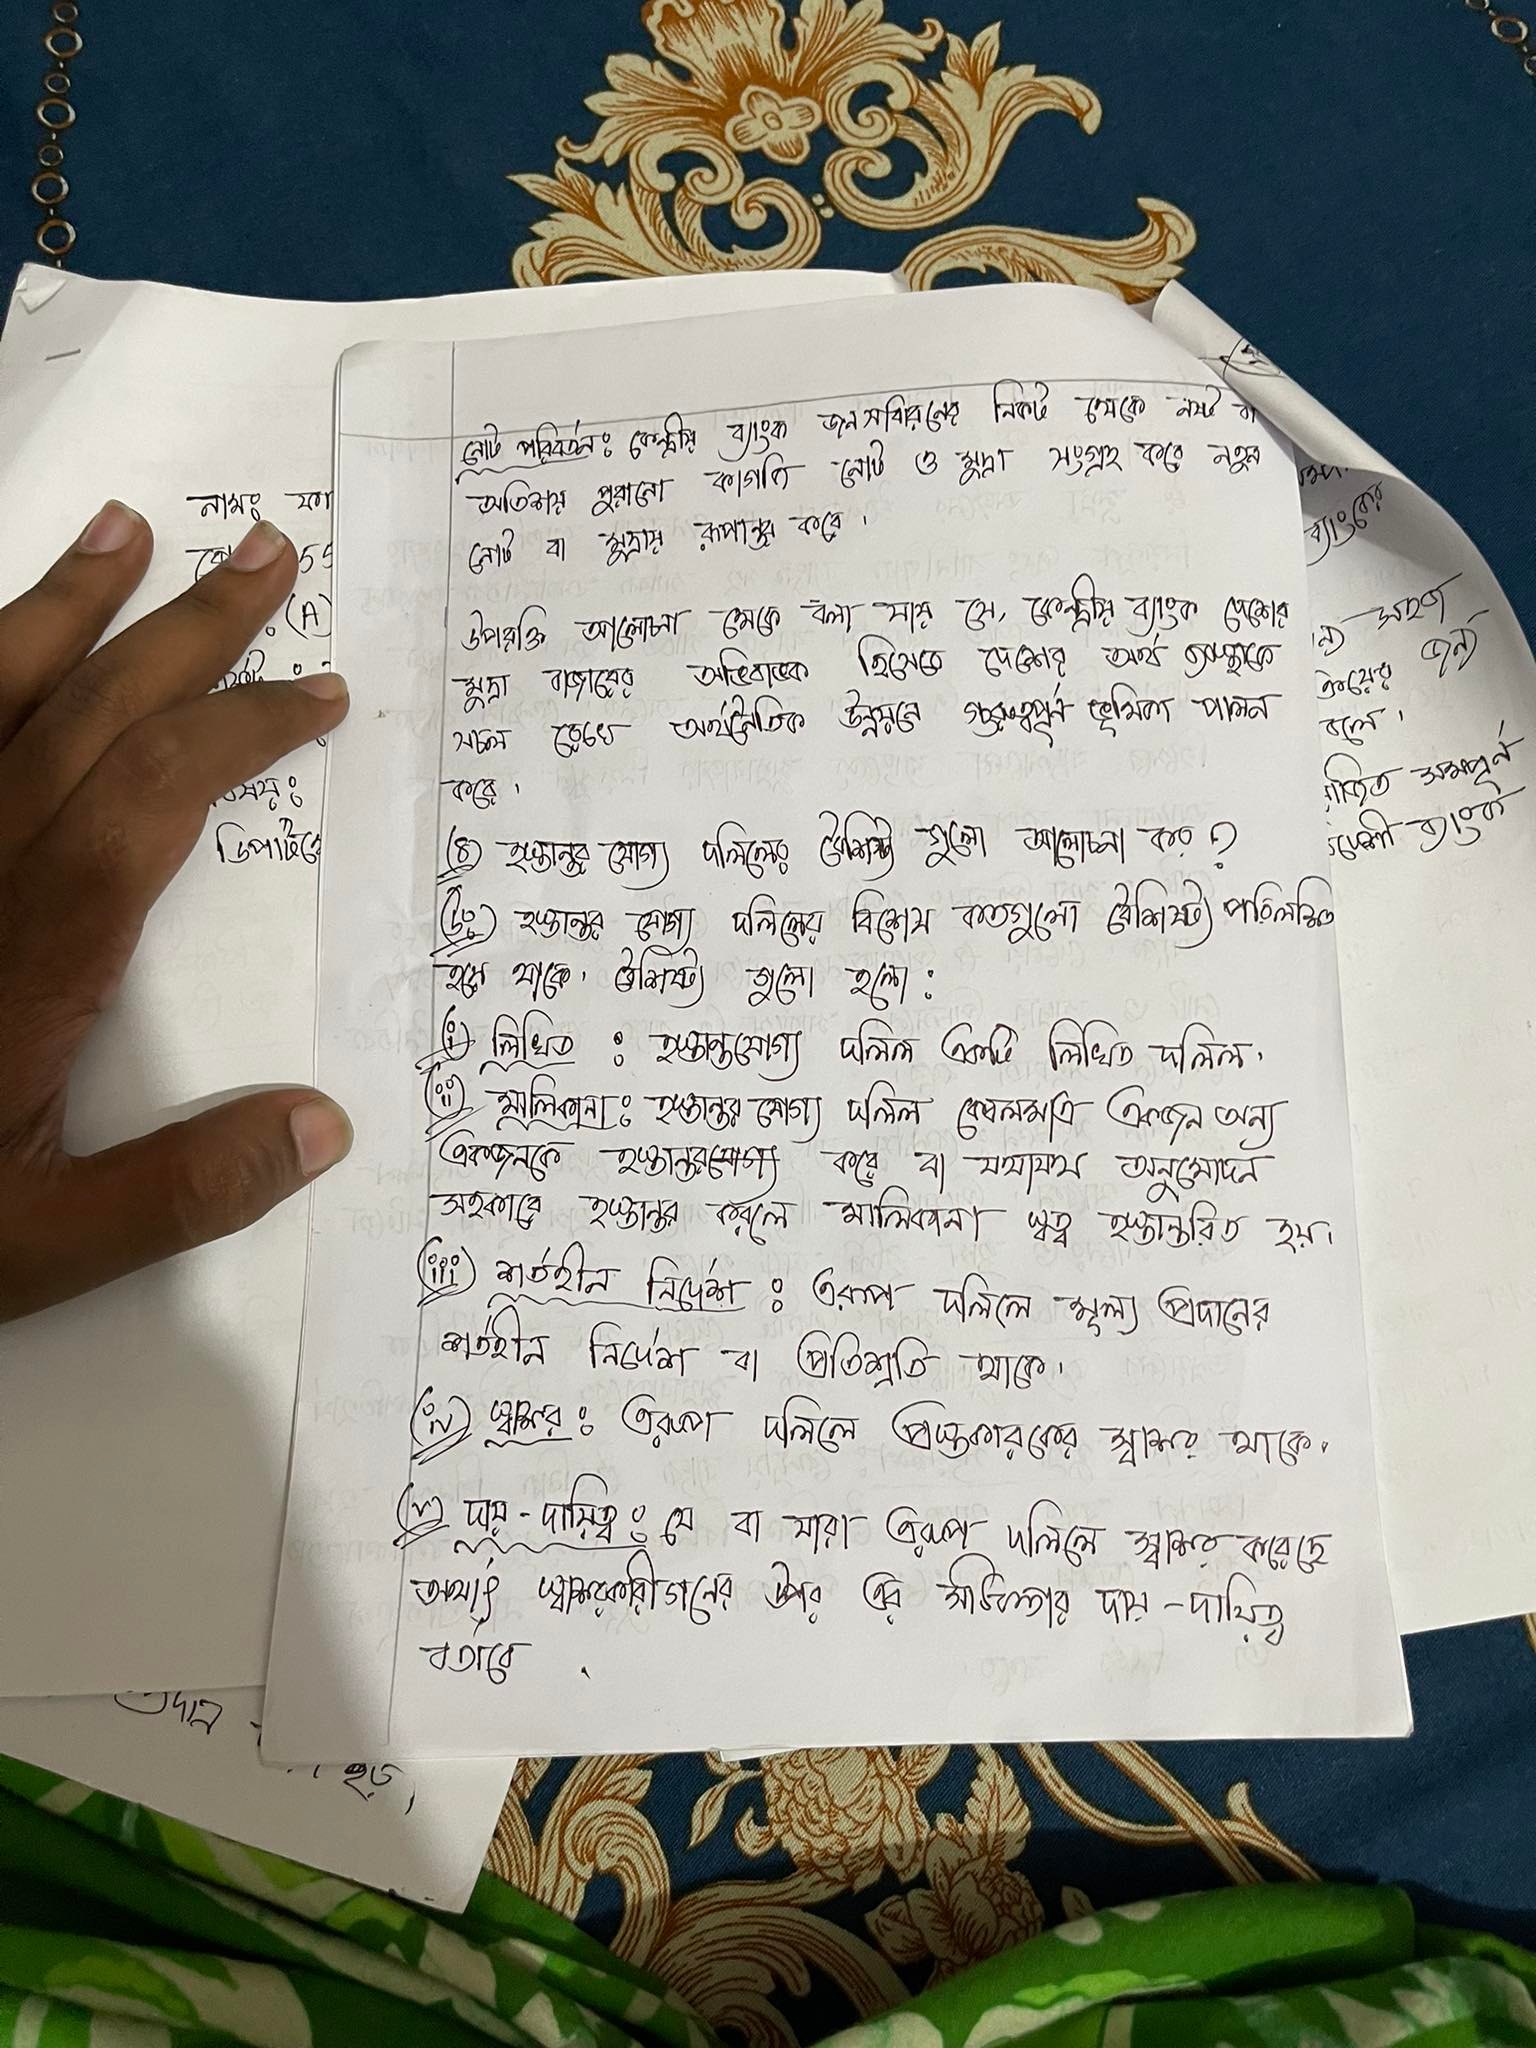 নোট পরিবর্তন: কেন্দ্রীয় ব্যাংক জনসাধারনের নিকট থেকে নষ্ট বা
অতিশয় পুরানো কাগজি নোট ও মুদ্রা সংগ্রহ করে নতুন
নোট বা মুদ্রায় রূপান্তর করে।
উপরোক্ত আলোচনা থেকে বলা যায় যে, কেন্দ্রীয় ব্যাংক দেশের
মুদ্রা বাজারের অভিভাবক হিসেবে দেশের অর্থ ব্যবস্থাকে
সচল রেখে অর্থনৈতিক উন্নয়নে গুরুত্বপূর্ণ ভূমিকা পালন
করে।
(৪) হস্তান্তর যোগ্য দলিলের বৈশিষ্ট্য গুলো আলোচনা কর?
(উঃ) হস্তান্তর যোগ্য দলিলের বিশেষ কতগুলো বৈশিষ্ট্য পরিলক্ষিত
হয়ে থাকে। বৈশিষ্ট্য গুলো হলো:
(i) লিখিত : হস্তান্তযোগ্য দলিল একটি লিখিত দলিল।
(ii) মালিকানা: হস্তান্তর যোগ্য দলিল কেবলমাত্র একজন অন্য
একজনকে হস্তান্তরযোগ্য করে বা যথাযথ অনুমোদন
সহকারে হস্তান্তর করলে মালিকানা স্বত্ব হস্তান্তরিত হয়।
(iii) শর্তহীন নির্দেশ : এরূপ দলিলে মূল্য প্রদানের
শর্তহীন নির্দেশ বা প্রতিশ্রুতি থাকে।
(iv) স্বাক্ষর : এরূপ দলিলে প্রস্তুকারকের স্বাক্ষর থাকে।
(v) দায়-দায়িত্ব : যে বা যারা এরূপ দলিলে স্বাক্ষর করেছে
অর্থাৎ স্বাক্ষরকারীগনের উপর এর সঠিকতার দায়-দায়িত্ব
বর্তাবে।
নামঃ
55
: (A)
বিষয়ঃ
ব্যাংকের
জন্য
বলে।
ব্যাংক